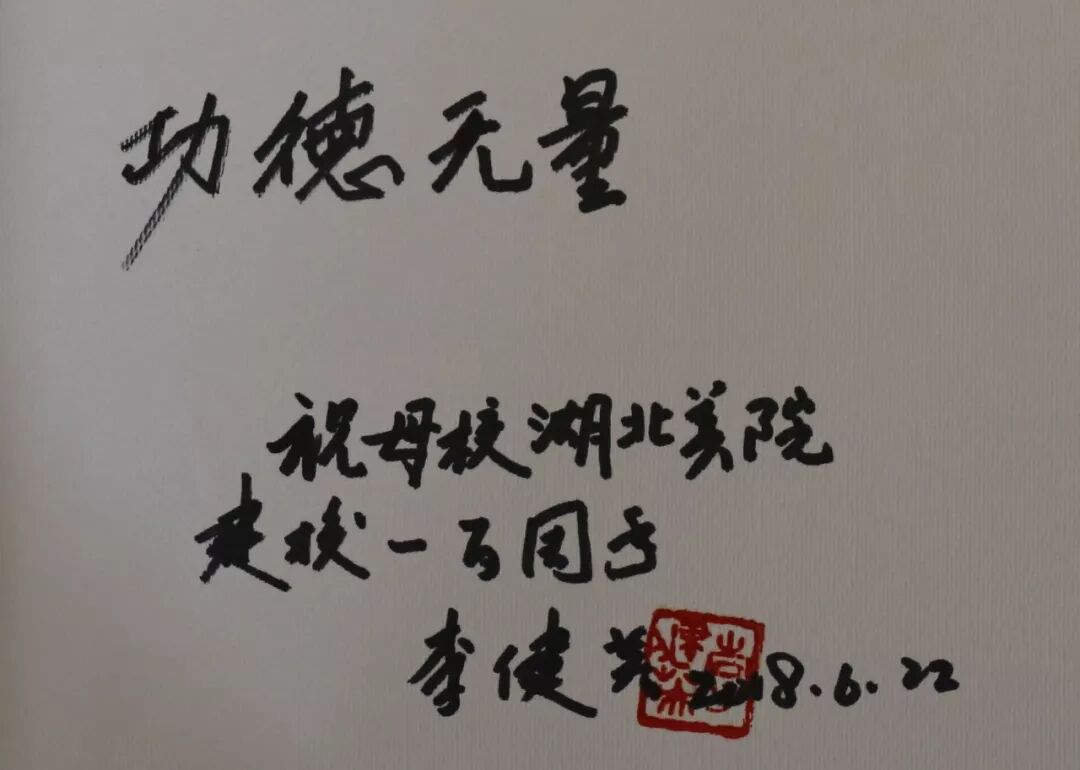 功德无量
祝母校湖北美院
建校一百周年
李健 2018.6.22